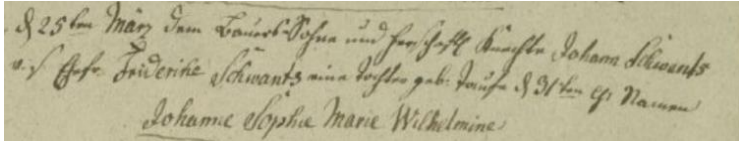 d 25ten März dem Bauers Sohne und herschaftl Knechte Johann Schwants
v. s/ Ehefr. Friderike Schwants eine Tochter geb. Taufe d 31ten ej. Namen
Johanne Sophie Marie Wilhelmine